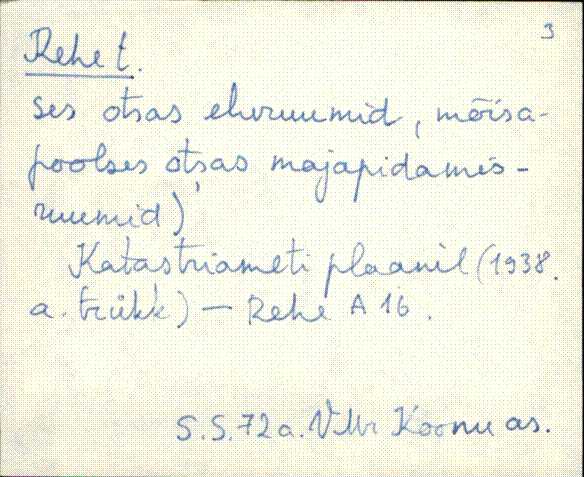 3
Rehe t.
ses otsas eluruumid, mõisa-
poolses otsas majapidamis-
ruumid)
Katastriameti plaanil (1938.
a. trükk) — Rehe A 16.
S.S. 72 a. VMr Koonu as.